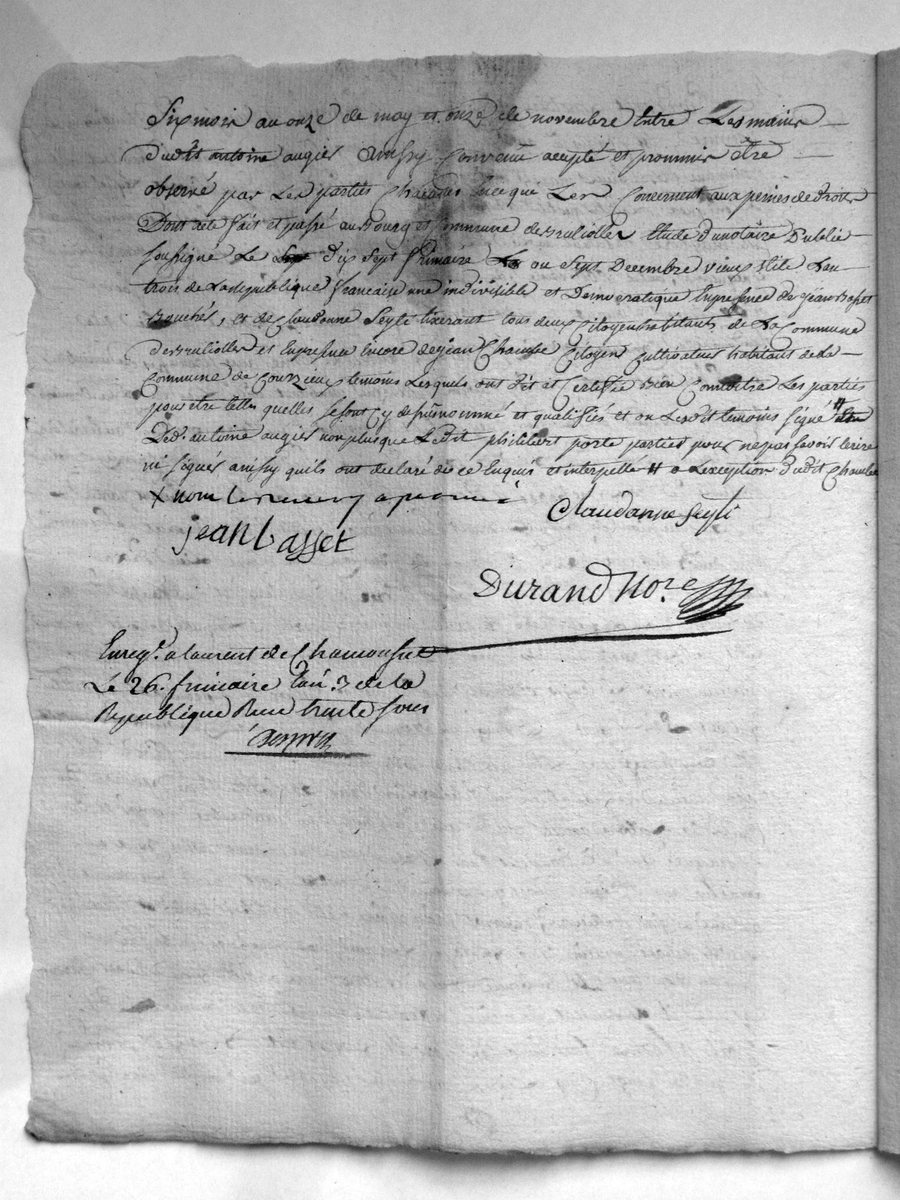 Six mois au onze de may et onze de novembre Entre Les mains
dudit antoine augier ainssy Convenu accepté et prommis être
observé par Les parties Chacunes En ce qui Les Concernent aux peines de droit
Dont acte fait et passé au Bourg et Commune de Brulliolles Etude du notaire Public
soussigné Le dix Sept frimaire ou Sept Decembre vieux stile L'an
trois de La republique francaise une indivisible et Democratique En presence de jean Basset
Bouchér, et de Claudanne Seyti tixerant tous deux Citoyens habitants de La Commune
de Brulliolles et En presence Encore de jean Chambe Citoyen Cultivateur habitant de La
Commune de Courzieux temoins Lesquels ont dit et Certifié bien Connoitre Les parties
pour etre telles quelles se sont Cy devant nommé et qualifiées et ont Lesdits temoins signé #
Led. antoine augier non plus que Ledit philibert porte parties pour ne pas savoir Ecrire
ni signer ainssy quils ont declaré de ce Enquis et interpellé # a L'exception dudit Chambe
jean basset
Claudanne Seyti
Durand No.re
Enreg.e a laurent de Chamousset
Le 26. frimaire L'an 3 de La
Republique Reçu trente sous